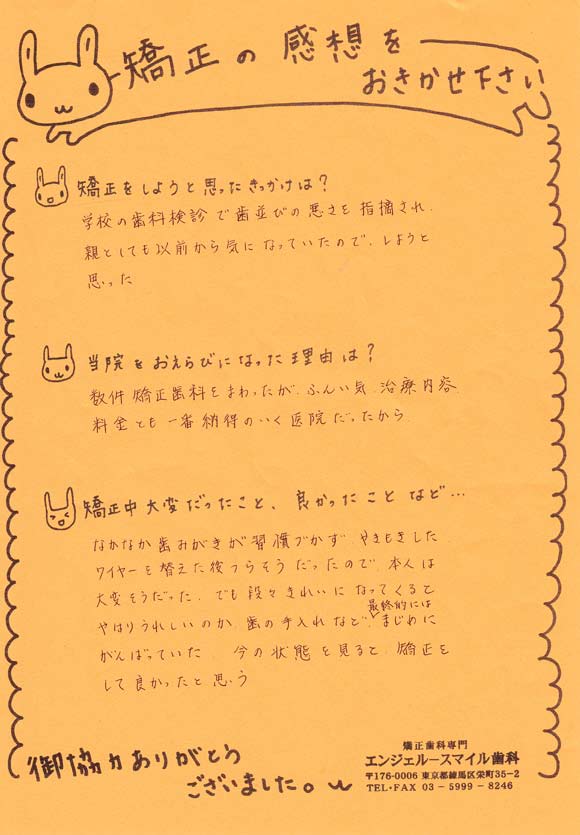 矯正の感想を
おきかせ下さい
矯正をしようと思ったきっかけは？
学校の歯科検診で歯並びの悪さを指摘され、
親としても以前から気になっていたので、しようと
思った
当院をおえらびになった理由は？
数件矯正歯科をまわったが、ふんい気、治療内容
料金とも一番納得のいく医院だったから
矯正中大変だったこと、良かったことなど…
なかなか歯みがきが習慣づかず、やきもきした
ワイヤーを替えた後つらそうだったので、本人は
大変そうだった、でも段々きれいになってくると
やはりうれしいのか、歯の手入れなど、最終的にはまじめに
がんばっていた、今の状態を見ると、矯正を
して良かったと思う
御協力ありがとう
ございました。
矯正歯科専門
エンジェルースマイル歯科
〒176-0006 東京都練馬区栄町35−2
TEL・FAX 03 − 5999 − 8246